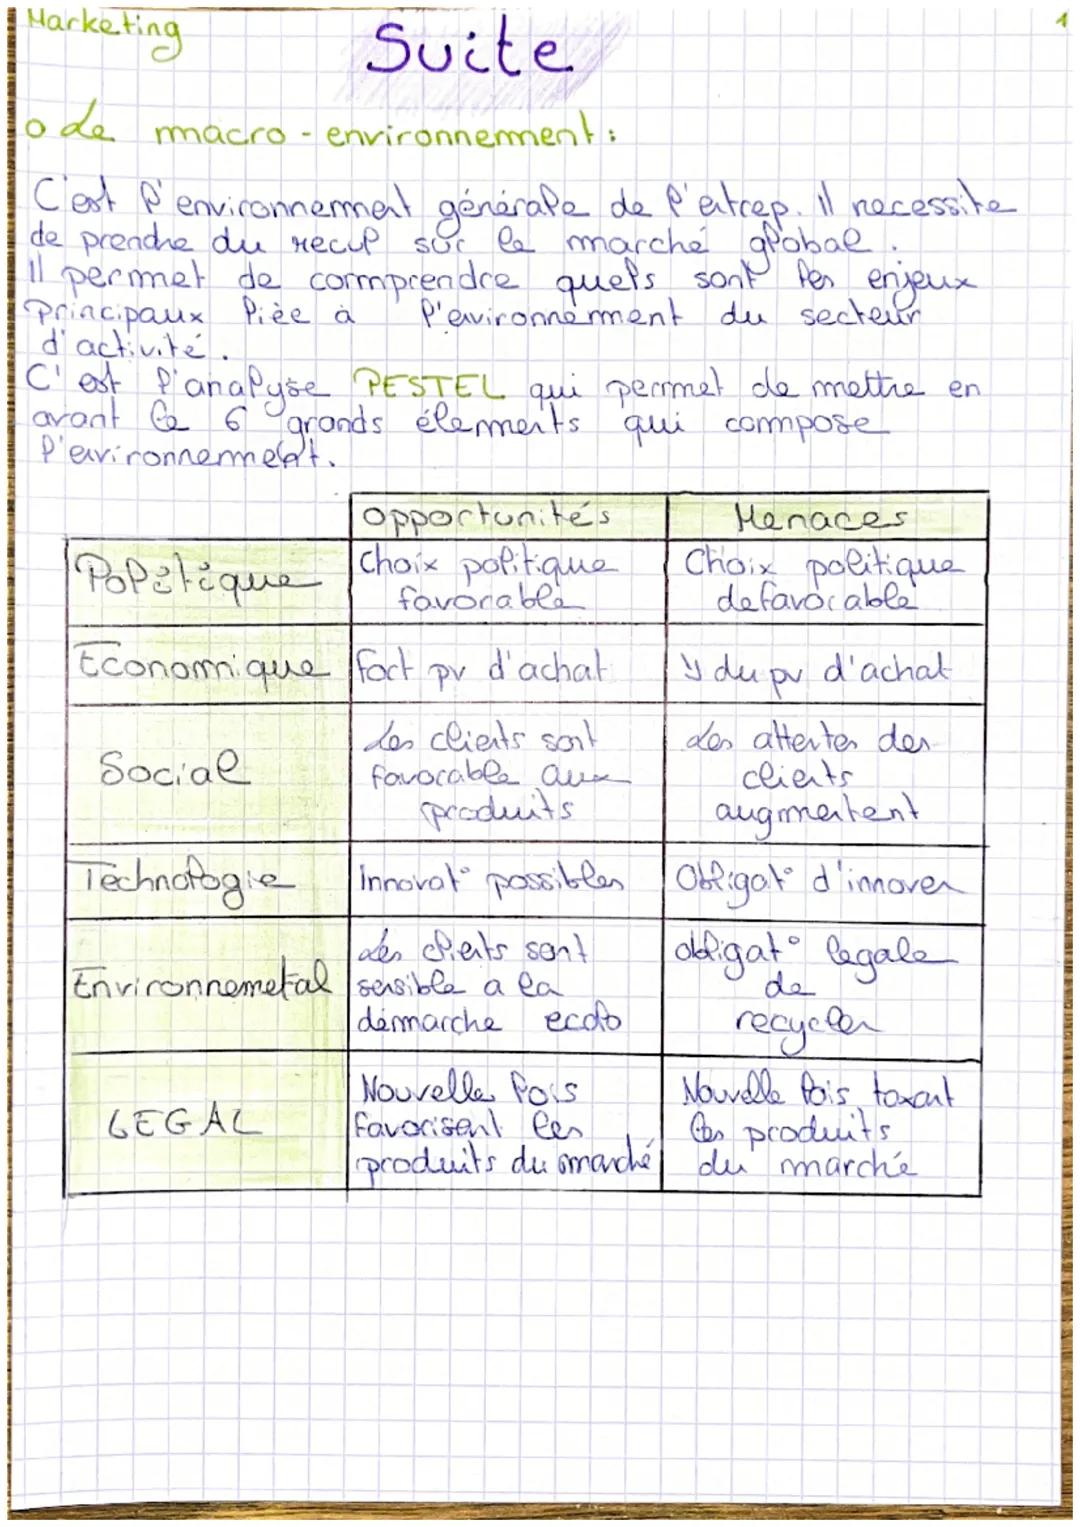 Marketing
1
Suite
o Le macro-environnement :
C'est l'environnement générale de l'entrep. Il necessite
de prendre du recul sur le marché global.
Il permet de comprendre quels sont les enjeux
principaux liée à l'environnement du secteur
d'activité.
C'est l'analyse PESTEL qui permet de mettre en
avant le 6 grands élements qui compose
l'environnement.
Opportunités Menaces
Politique Choix politique favorable Choix politique defavorable
Economique Fort pv d'achat ↘ du pv d'achat
Social Les clients sont favorable aux produits Les attentes des clients augmentent
Technologie Innovat° possibles Obligat° d'innover
Environnemetal Les clients sont sensible a la démarche ecolo obligat° legale de recycler
LEGAL Nouvelles lois favorisent les produits du marché Nouvelle lois taxant les produits du marché